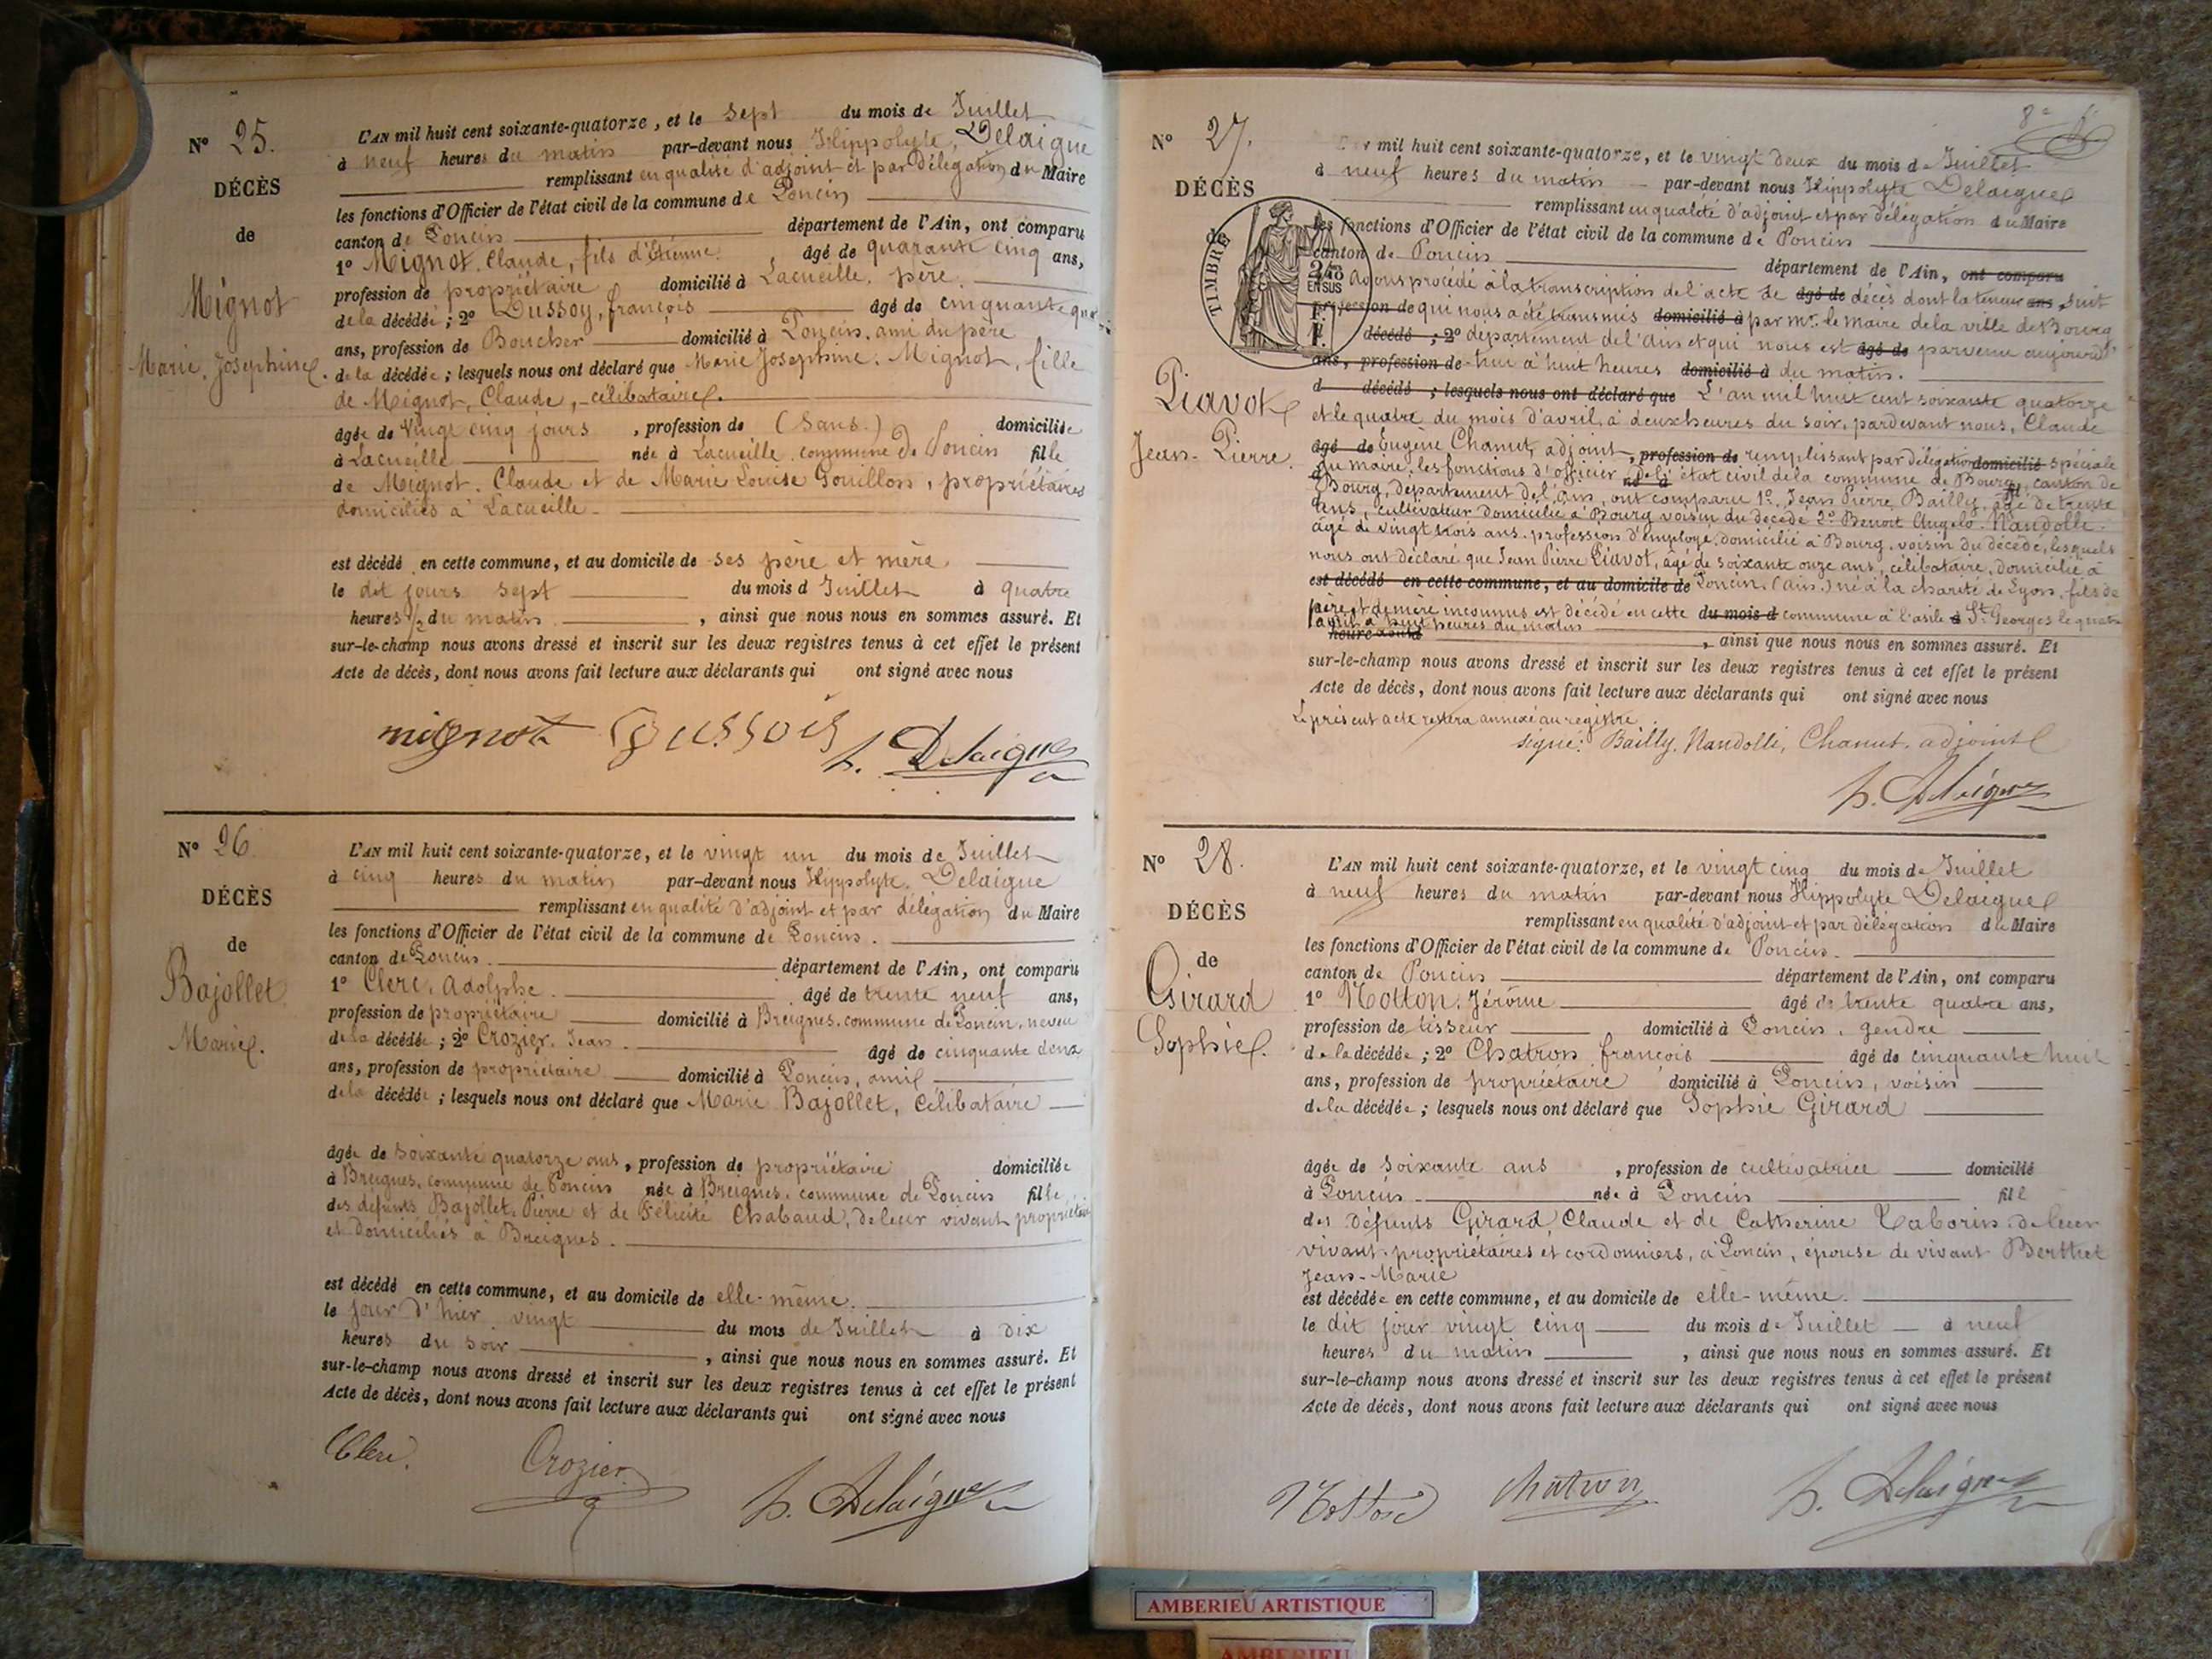 N° 25.
DÉCÈS
de
Mignot
Marie, Joséphine.
L'AN mil huit cent soixante-quatorze, et le sept du mois de Juillet
à neuf heures du matin par-devant nous Hippolyte, Delaigue
remplissant en qualité d'adjoint et par délégation du Maire
les fonctions d'Officier de l'état civil de la commune de Poncin
canton de Poncin département de l'Ain, ont comparu
1° Mignot, Claude, fils d'Etienne. âgé de quarante cinq ans,
profession de propriétaire domicilié à Lacueille, père.
de la décédée ; 2° Dussoy, françois âgé de cinquante
ans, profession de Boucher domicilié à Poncin, ami du père
de la décédée ; lesquels nous ont déclaré que Marie Joséphine. Mignot, fille
de Mignot, Claude, célibataire.
âgée de Vingt cinq jours , profession de (Sans.) domiciliée
à Lacueille née à Lacueille, commune de Poncin fille
de Mignot. Claude et de Marie Louise Gouillon, propriétaires
domiciliés à Lacueille.
est décédé en cette commune, et au domicile de ses père et mère
le dit jours sept du mois d Juillet à quatre
heures ½ du matin , ainsi que nous nous en sommes assuré. Et
sur-le-champ nous avons dressé et inscrit sur les deux registres tenus à cet effet le présent
Acte de décès, dont nous avons fait lecture aux déclarants qui ont signé avec nous
mignot Dussois h. Delaigue
N° 26.
DÉCÈS
de
Bajollet
Marie.
L'AN mil huit cent soixante-quatorze, et le vingt un du mois de Juillet
à cinq heures du matin par-devant nous Hippolyte. Delaigue
remplissant en qualité d'adjoint et par délégation du Maire
les fonctions d'Officier de l'état civil de la commune de Poncin.
canton de Poncin. département de l'Ain, ont comparu
1° Clerc, Adolphe. âgé de trente neuf ans,
profession de propriétaire domicilié à Breignes, commune de Poncin, neveu
de la décédée ; 2° Crozier, Jean. âgé de cinquante deux
ans, profession de propriétaire domicilié à Poncin, ami
de la décédée ; lesquels nous ont déclaré que Marie Bajollet, Célibataire
âgée de soixante quatorze ans, profession de propriétaire domiciliée
à Breignes, commune de Poncin née à Breignes, commune de Poncin fille
des défunts Bajollet, Pierre et de Félicité Chabaud, de leur vivant propriétaires
et domiciliés à Breignes.
est décédé en cette commune, et au domicile de elle-même.
le jour d'hier vingt du mois de Juillet à dix
heures du soir , ainsi que nous nous en sommes assuré. Et
sur-le-champ nous avons dressé et inscrit sur les deux registres tenus à cet effet le présent
Acte de décès, dont nous avons fait lecture aux déclarants qui ont signé avec nous
Clerc. Crozier h. Delaigue
8e
N° 27.
DÉCÈS
de
TIMBRE
Piavot
Jean-Pierre.
mil huit cent soixante-quatorze, et le vingt deux du mois de Juillet
à neuf heures du matin par-devant nous Hippolyte Delaigue
remplissant en qualité d'adjoint et par délégation du Maire
les fonctions d'Officier de l'état civil de la commune de Poncin
canton de Poncin département de l'Ain, ont comparu
avons procédé à la transcription de l'acte de âgé de décès dont la teneur ans, suit
profession de qui nous a été transmis domicilié à par Mr. le Maire de la ville de Bourg
décédé ; 2° département de l'Ain et qui nous est âgé de parvenu aujourd'
ans, profession de hui à huit heures domicilié à du matin.
d décédé ; lesquels nous ont déclaré que L'an mil huit cent soixante quatorze
et le quatre du mois d'avril, à deux heures du soir, pardevant nous, Claude
âgé de Eugène Chanut, adjoint, profession de remplissant par délégation domicilié spéciale
du maire, les fonctions d'officier de l'état civil de la commune de Bourg, canton de
Bourg, département de l'Ain, ont comparu 1° Jean Pierre Bailly, âgé de trente
ans, cultivateur domicilié à Bourg voisin du décédé 2° Benoit Angelo Nandolle
âgé de vingt trois ans. profession d'employé, domicilié à Bourg, voisin du décédé, lesquels
nous ont déclaré que Jean Pierre Piavot, âgé de soixante onze ans, célibataire, domicilié à
est décédé en cette commune, et au domicile de Poncin, (Ain) né à la charité de Lyon, fils de
père et de mère inconnus est décédé en cette du mois d commune à l'asile à St Georges le quatre
avril à huit heures du matin
heure , ainsi que nous nous en sommes assuré. Et
sur-le-champ nous avons dressé et inscrit sur les deux registres tenus à cet effet le présent
Acte de décès, dont nous avons fait lecture aux déclarants qui ont signé avec nous
Le présent acte restera annexé au registre.
signé: Bailly, Nandolli, Chanut, adjoint
h. Delaigue
N° 28.
DÉCÈS
de
Girard
Sophie.
L'AN mil huit cent soixante-quatorze, et le vingt cinq du mois de Juillet
à neuf heures du matin par-devant nous Hippolyte Delaigue
remplissant en qualité d'adjoint et par délégation du Maire
les fonctions d'Officier de l'état civil de la commune de Poncin.
canton de Poncin département de l'Ain, ont comparu
1° Motton, Jérôme âgé de trente quatre ans,
profession de tisseur domicilié à Poncin, gendre
de la décédée ; 2° Chatron françois âgé de cinquante huit
ans, profession de propriétaire domicilié à Poncin, voisin
de la décédée ; lesquels nous ont déclaré que Sophie Girard
âgée de soixante ans , profession de cultivatrice domicilié
à Poncin née à Poncin fill
des défunts Girard Claude et de Catherine Taborin de leur
vivant propriétaires et cordonniers, à Poncin, épouse de vivant Berthet
Jean-Marie
est décédée en cette commune, et au domicile de elle-même.
le dit jour vingt cinq du mois de Juillet à neuf
heures du matin , ainsi que nous nous en sommes assuré. Et
sur-le-champ nous avons dressé et inscrit sur les deux registres tenus à cet effet le présent
Acte de décès, dont nous avons fait lecture aux déclarants qui ont signé avec nous
Motton Chatron h. Delaigue
AMBERIEU ARTISTIQUE
AMBERIEU